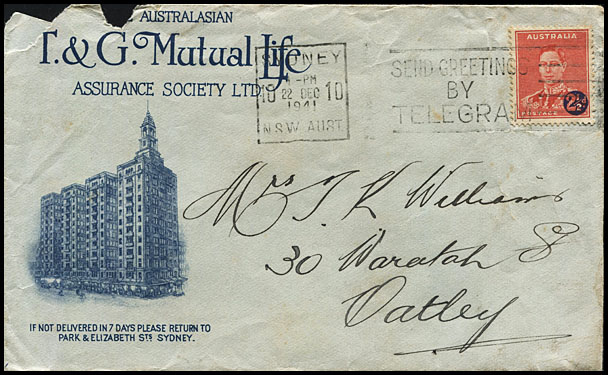 AUSTRALASIAN
T. & G. Mutual Life
ASSURANCE SOCIETY LTD
SYDNEY
-PM
10 22 DEC 10
1941
N.S.W. AUST
SEND GREETINGS
BY
TELEGRA
AUSTRALIA
2½
POSTAGE
Mrs T K Williams
30 Waratah S
Oatley
IF NOT DELIVERED IN 7 DAYS PLEASE RETURN TO
PARK & ELIZABETH STS. SYDNEY.